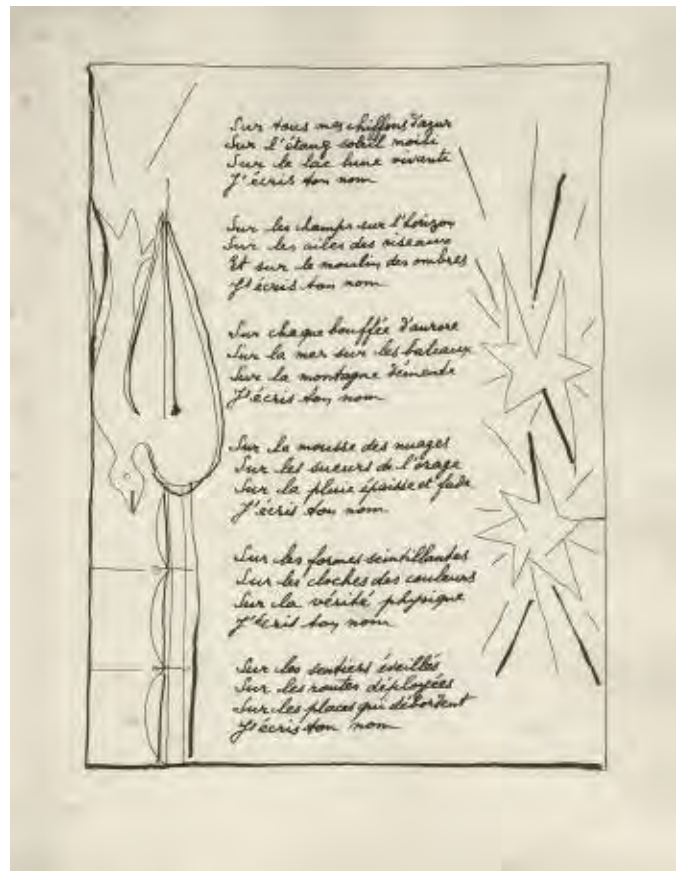 Sur tous mes chiffons d'azur
Sur l'étang soleil moisi
Sur le lac lune vivante
J'écris ton nom
Sur les champs sur l'horizon
Sur les ailes des oiseaux
Et sur le moulin des ombres
J'écris ton nom
Sur chaque bouffée d'aurore
Sur la mer sur les bateaux
Sur la montagne démente
J'écris ton nom
Sur la mousse des nuages
Sur les sueurs de l'orage
Sur la pluie épaisse et fade
J'écris ton nom
Sur les formes scintillantes
Sur les cloches des couleurs
Sur la vérité physique
J'écris ton nom
Sur les sentiers éveillés
Sur les routes déployées
Sur les places qui débordent
J'écris ton nom